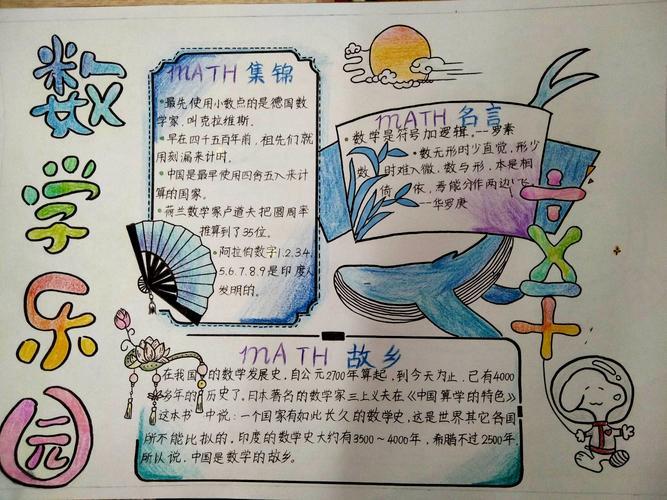 数学乐园
MATH 集锦
•最先使用小数点的是德国数
学家,叫克拉维斯.
•早在四千五百年前,祖先们就
用刻漏来计时.
•中国是最早使用四舍五入来计
算的国家.
•荷兰数学家卢道夫把圆周率
推算到了35位.
•阿拉伯数字1.2.3.4.
5.6.7.8.9是印度人
发明的。
MATH 名言
•数学是符号加逻辑。--罗素
•数无形时少直觉,形少
数时难入微,数与形,本是相
倚依,焉能分作两边飞
--华罗庚
MATH 故乡
在我国的数学发展史,自公元2700年算起,到今天为止,已有4000
多年的历史了,日本著名的数学家三上义夫在《中国算学的特色》
这本书中说:一个国家有如此长久的数学史,这是世界其它各国
所不能比拟的,印度的数学史大约有3500～4000年,希腊不过2500年,
所以说,中国是数学的故乡。
÷×+